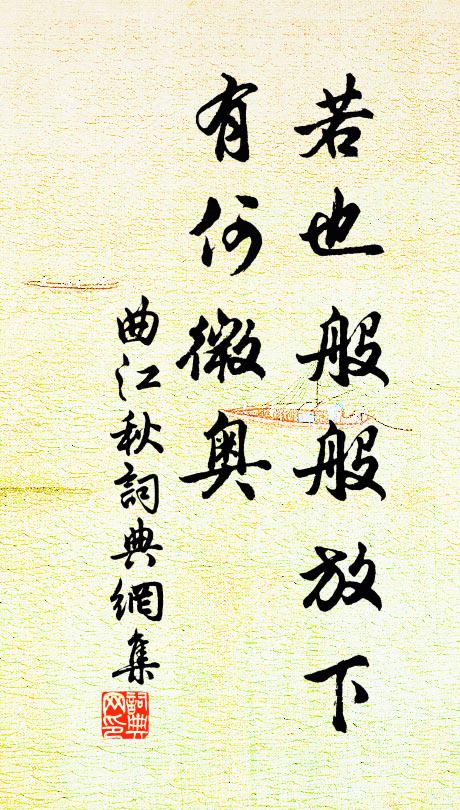 若也般般放下
有何微奧
曲江秋詞典網集
詞典网印